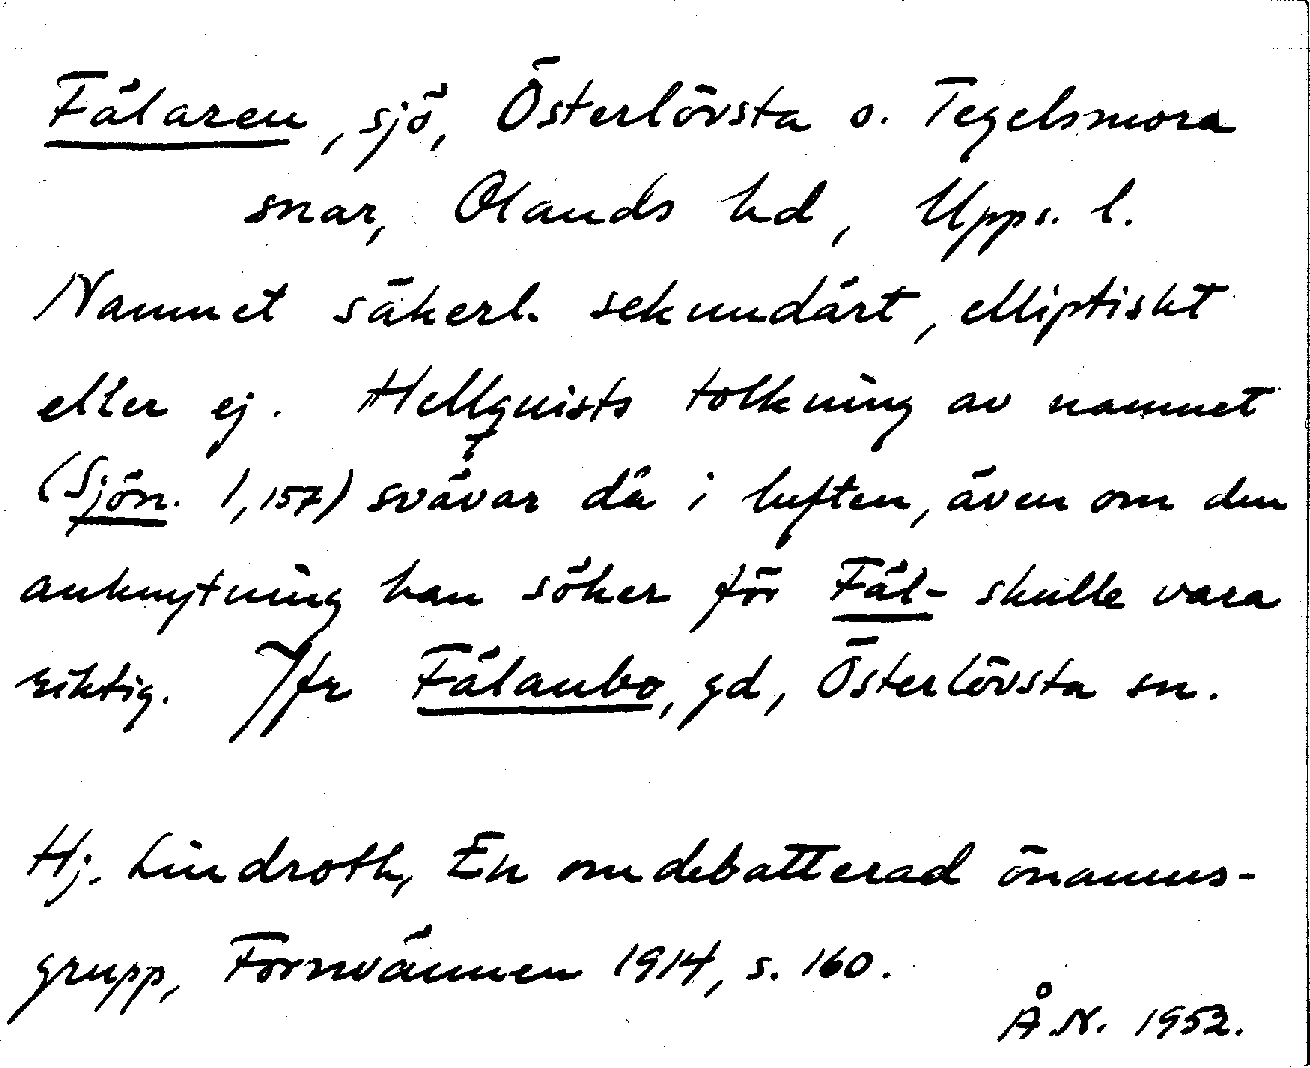 Fälaren, sjö, Österlövsta o. Tegelsmora
snar, Olands hd, Upps. l.
Namnet säkerl. sekundärt, elliptiskt
eller ej. Hellquists tolkning av namnet
(Sjön. 1,157) svävar då i luften, även om den
anknytning han söker för Fäl- skulle vara
riktig. Jfr Fälanbo, gd, Österlövsta sn.
Hj. Lindroth, En omdebatterad önamns-
grupp, Fornvännen 1914, s. 160.
Å.N. 1952.